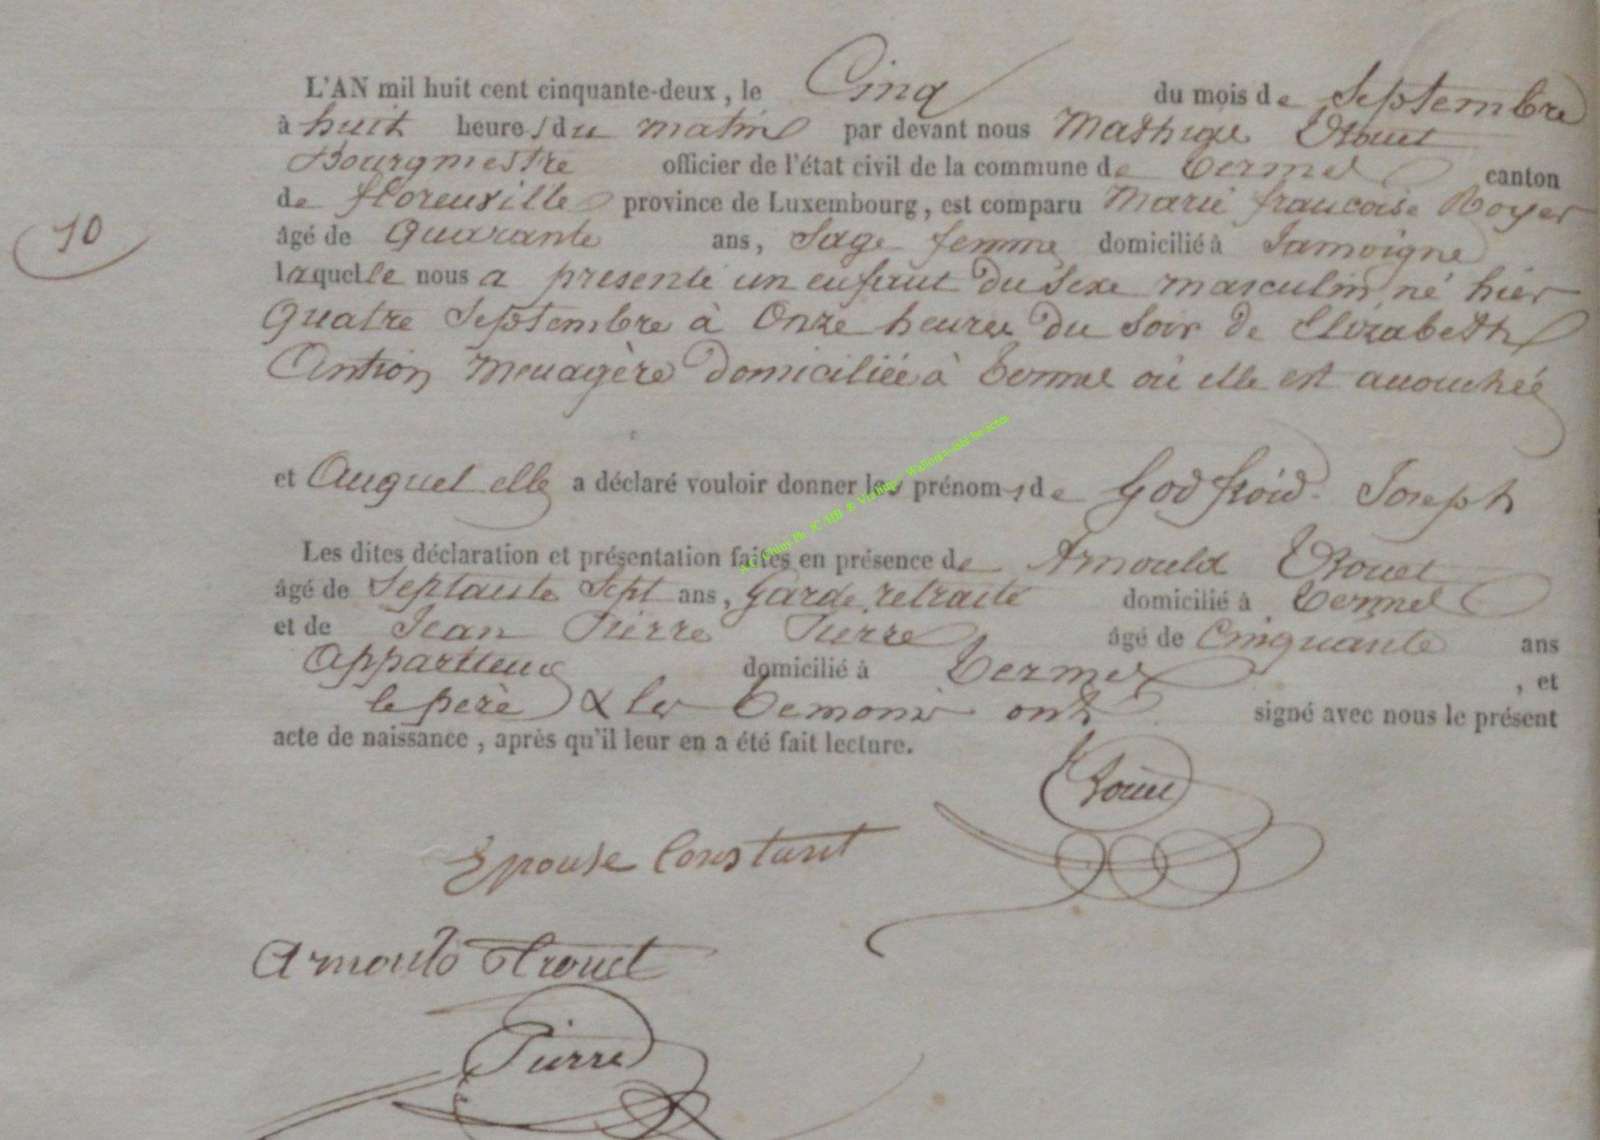 L'AN mil huit cent cinquante-deux, le Cinq du mois de Septembre
à huit heures du matin par devant nous Mathieu Trouet
Bourgmestre officier de l'état civil de la commune de Termes canton
de florenville province de Luxembourg, est comparu Marie francoise Royer
10
âgé de Quarante ans, Sage femme domicilié à Jamoigne
laquelle nous a presenté un enfant du Sexe masculin né hier
Quatre Septembre à Onze heures du Soir de Elizabeth
Antion Menagère domiciliée à Termes où elle est accouchée
et Auquel elle a déclaré vouloir donner les prénoms de Godfroid Joseph
Les dites déclaration et présentation faites en présence de Arnould Trouet
âgé de Septante Sept ans, Garde retraité domicilié à Termes
et de Jean Pierre Pierre âgé de Cinquante ans
domicilié à Termes , et
le père & les temoins ont signé avec nous le présent
acte de naissance, après qu'il leur en a été fait lecture.
Trouet
Epouse Constant
Arnould Trouet
Pierre